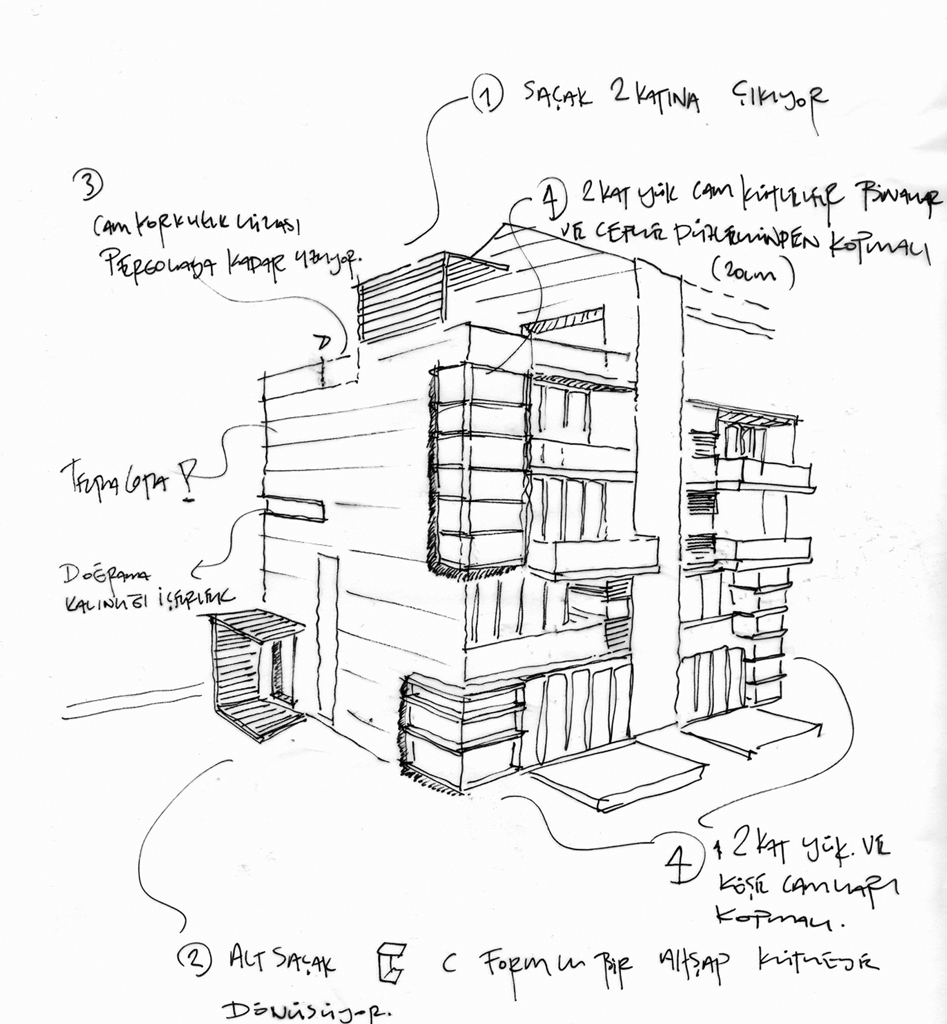 1 SAÇAK 2 KATINA ÇIKIYOR
3
CAM KORKULUK HİZASI
PERGOLAYA KADAR UZUYOR.
4 2 KAT YÜK CAM KÜTLELER BİNALAR
VE CEPHE DÜZLEMİNDEN KOPMALI
(20cm)
TERRA COTTA !
DOĞRAMA
KALINLIĞI İÇERLEK
4 1, 2 KAT YÜK. VE
KÖŞE CAMLARI
KOPMALI.
2 ALT SAÇAK C FORMLU BİR AHŞAP KÜTLEYE
DÖNÜŞÜYOR.